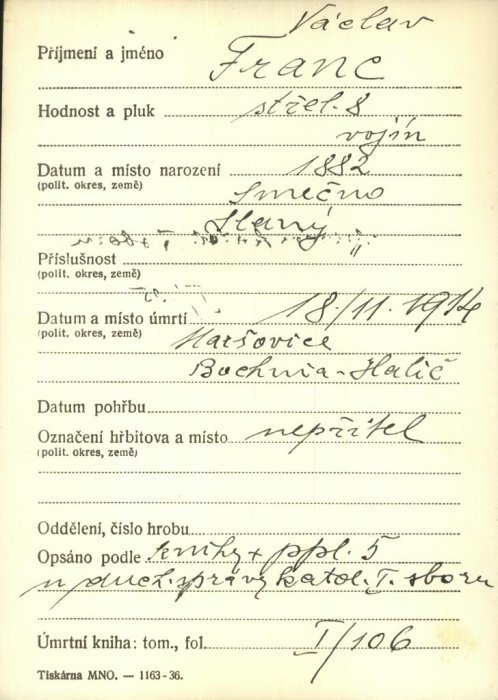 Václav
Příjmení a jméno Franc
Hodnost a pluk střel. 8
vojín
Datum a místo narození 1882
(polit. okres, země) Smečno
Slaný
Příslušnost "
(polit. okres, země)
Datum a místo úmrtí 18./11. 1914
(polit. okres, země) Maršovice
Bochnia - Halič
Datum pohřbu
Označení hřbitova a místo nepřítel
(polit. okres, země)
Oddělení, číslo hrobu
Opsáno podle knihy + ppl. 5
u duch. správy katol. I. sboru
Úmrtní kniha: tom., fol. I/106
Tiskárna MNO. — 1163-36.